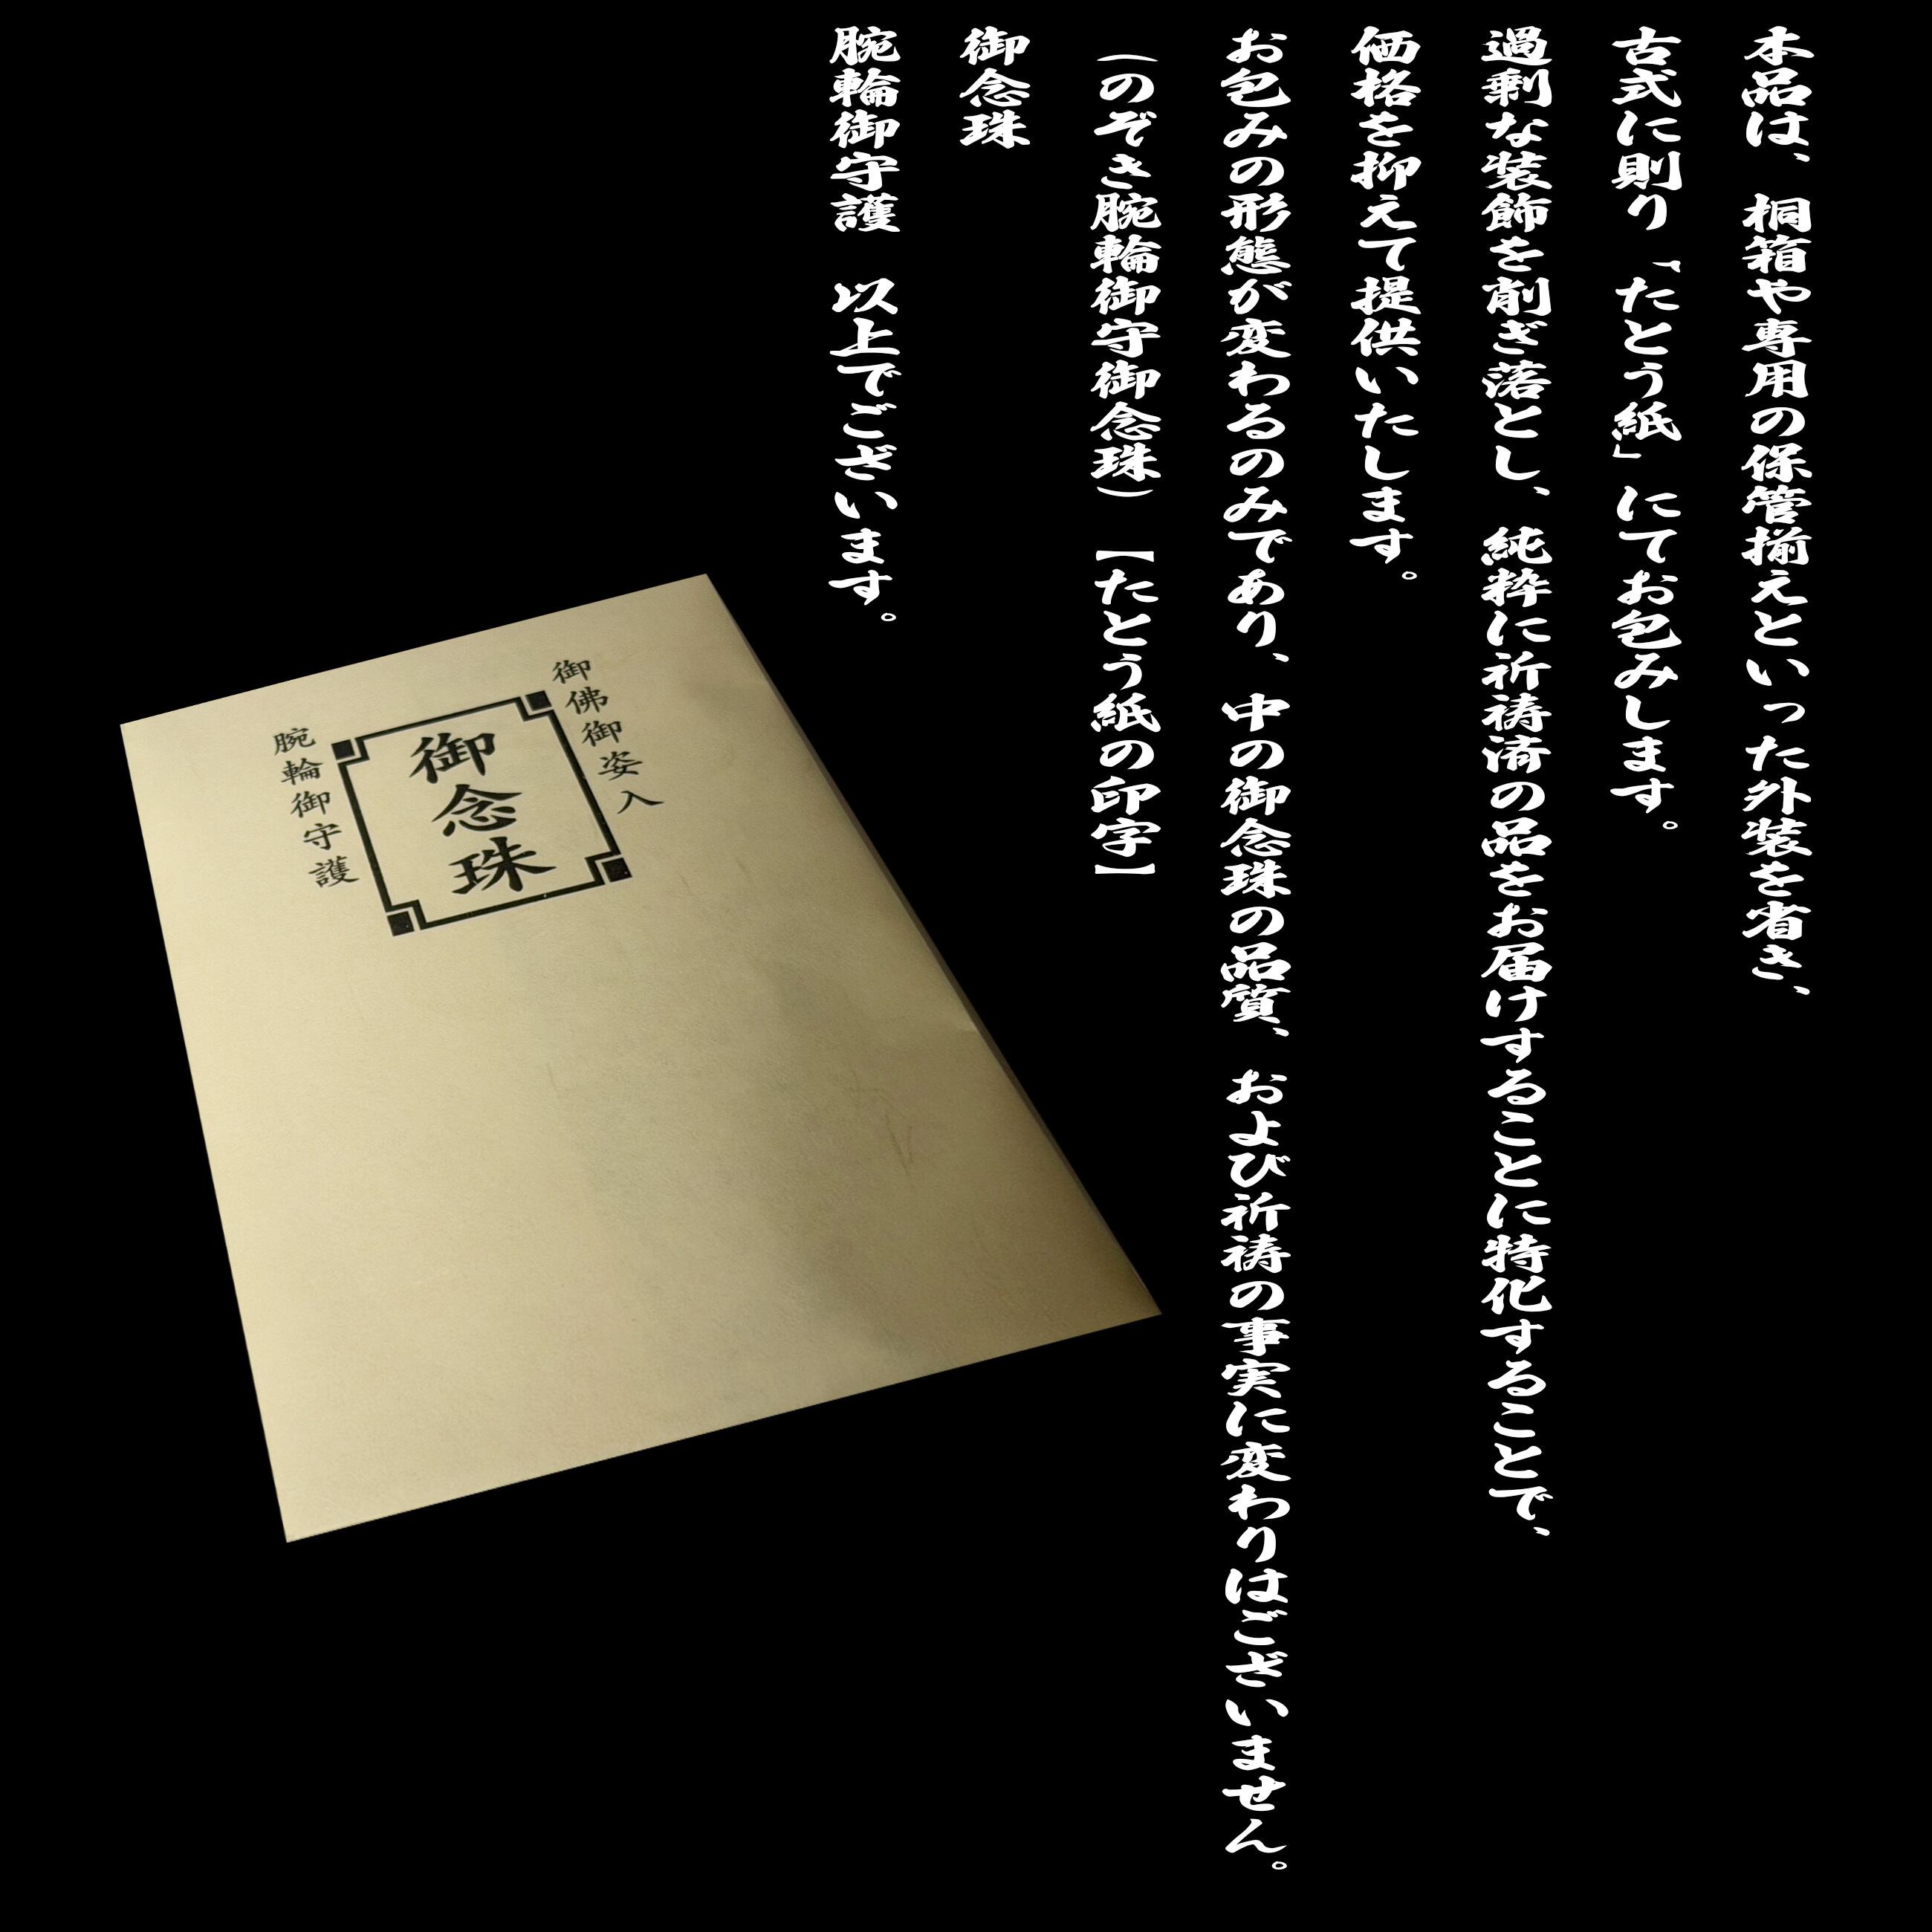 本品は、桐箱や専用の保管揃えといった外装を省き、
古式に則り「たとう紙」にてお包みします。
過剰な装飾を削ぎ落とし、純粋に祈祷済の品をお届けすることに特化することで、
価格を抑えて提供いたします。
お包みの形態が変わるのみであり、中の御念珠の品質、および祈祷の事実に変わりはございません。
（のぞき腕輪御守御念珠）【たとう紙の印字】
御念珠
腕輪御守護　以上でございます。
御佛御姿入
御念珠
腕輪御守護